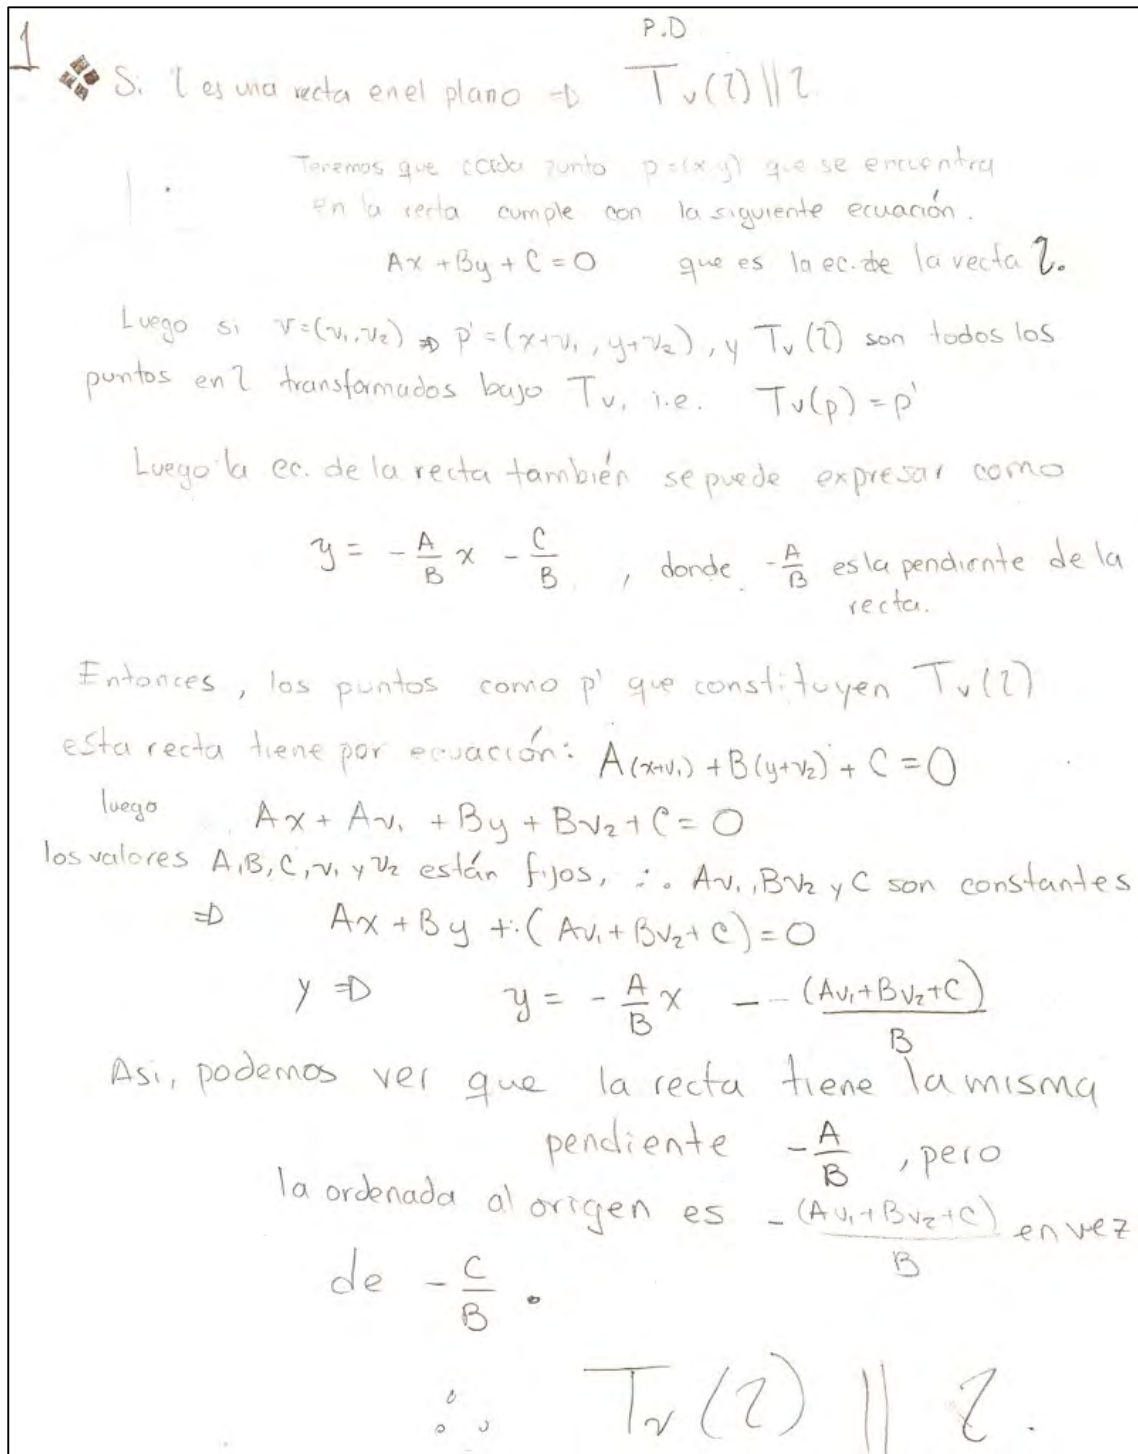 1
P.D
Si l es una recta en el plano ⇒ Tv(l) || l.
Tenemos que cada punto p=(x,y) que se encuentra
en la recta cumple con la siguiente ecuación.
Ax + By + C = 0 que es la ec. de la recta l.
Luego si v=(v₁,v₂) ⇒ p'=(x+v₁, y+v₂), y Tv(l) son todos los
puntos en l transformados bajo Tv, i.e. Tv(p) = p'
Luego la ec. de la recta también se puede expresar como
y = -A/B x - C/B , donde -A/B es la pendiente de la
recta.
Entonces, los puntos como p' que constituyen Tv(l)
esta recta tiene por ecuación: A(x+v₁) + B(y+v₂) + C = 0
luego Ax + Av₁ + By + Bv₂ + C = 0
los valores A,B,C,v₁ y v₂ están fijos, ∴ Av₁, Bv₂ y C son constantes
⇒ Ax + By + (Av₁ + Bv₂ + C) = 0
y ⇒ y = -A/B x - -(Av₁+Bv₂+C)/B
Asi, podemos ver que la recta tiene la misma
pendiente -A/B , pero
la ordenada al origen es -(Av₁+Bv₂+C)/B en vez
de -C/B .
∴ Tv(l) || l.